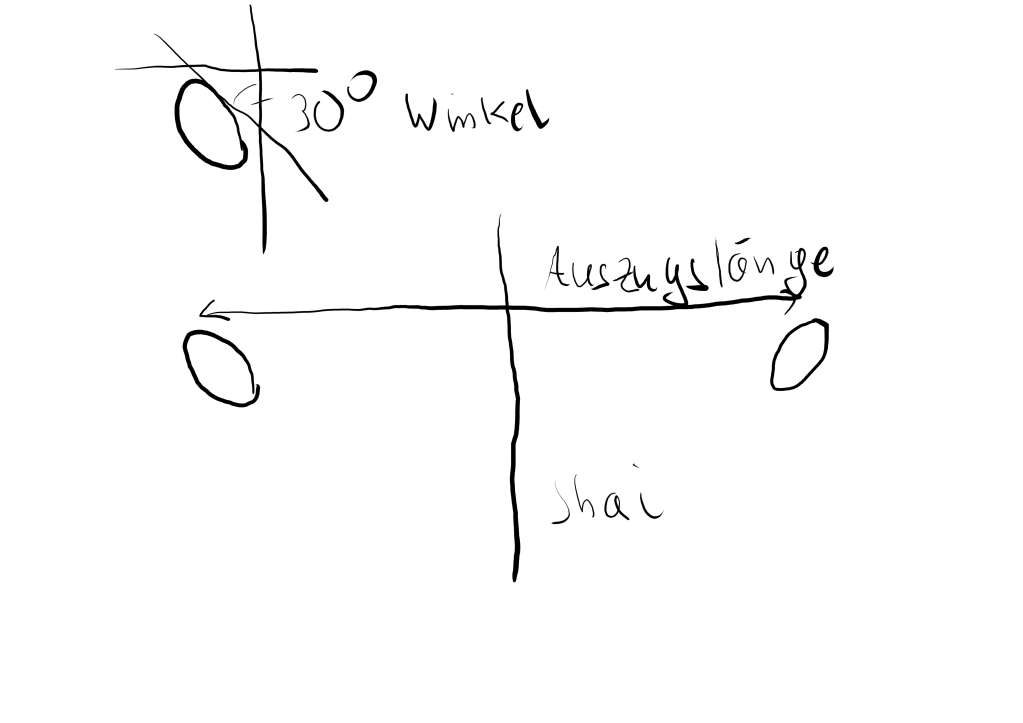 30° Winkel
Auszugslänge
Shai